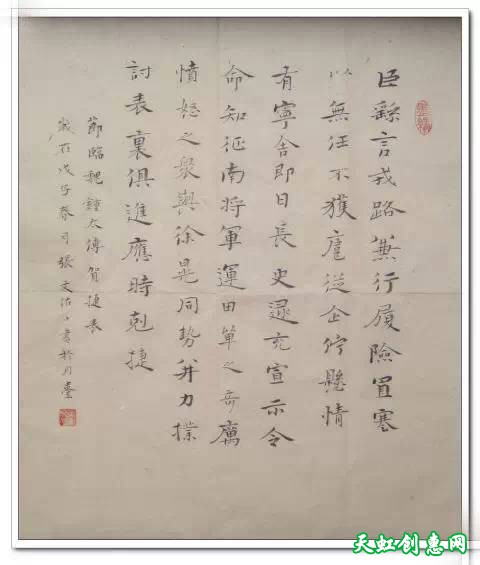 臣繇言戎路兼行履險冒寒
以無任不獲扈從企佇懸情
有寧舍即日長史逯充宣示令
命知征南将軍運田單之奇厲
憤怒之衆與徐晃同勢并力撲
討表裏俱進應時剋捷
節臨魏鍾太傅賀捷表
歲在戊子春月張文書於月臺
天虹创惠网